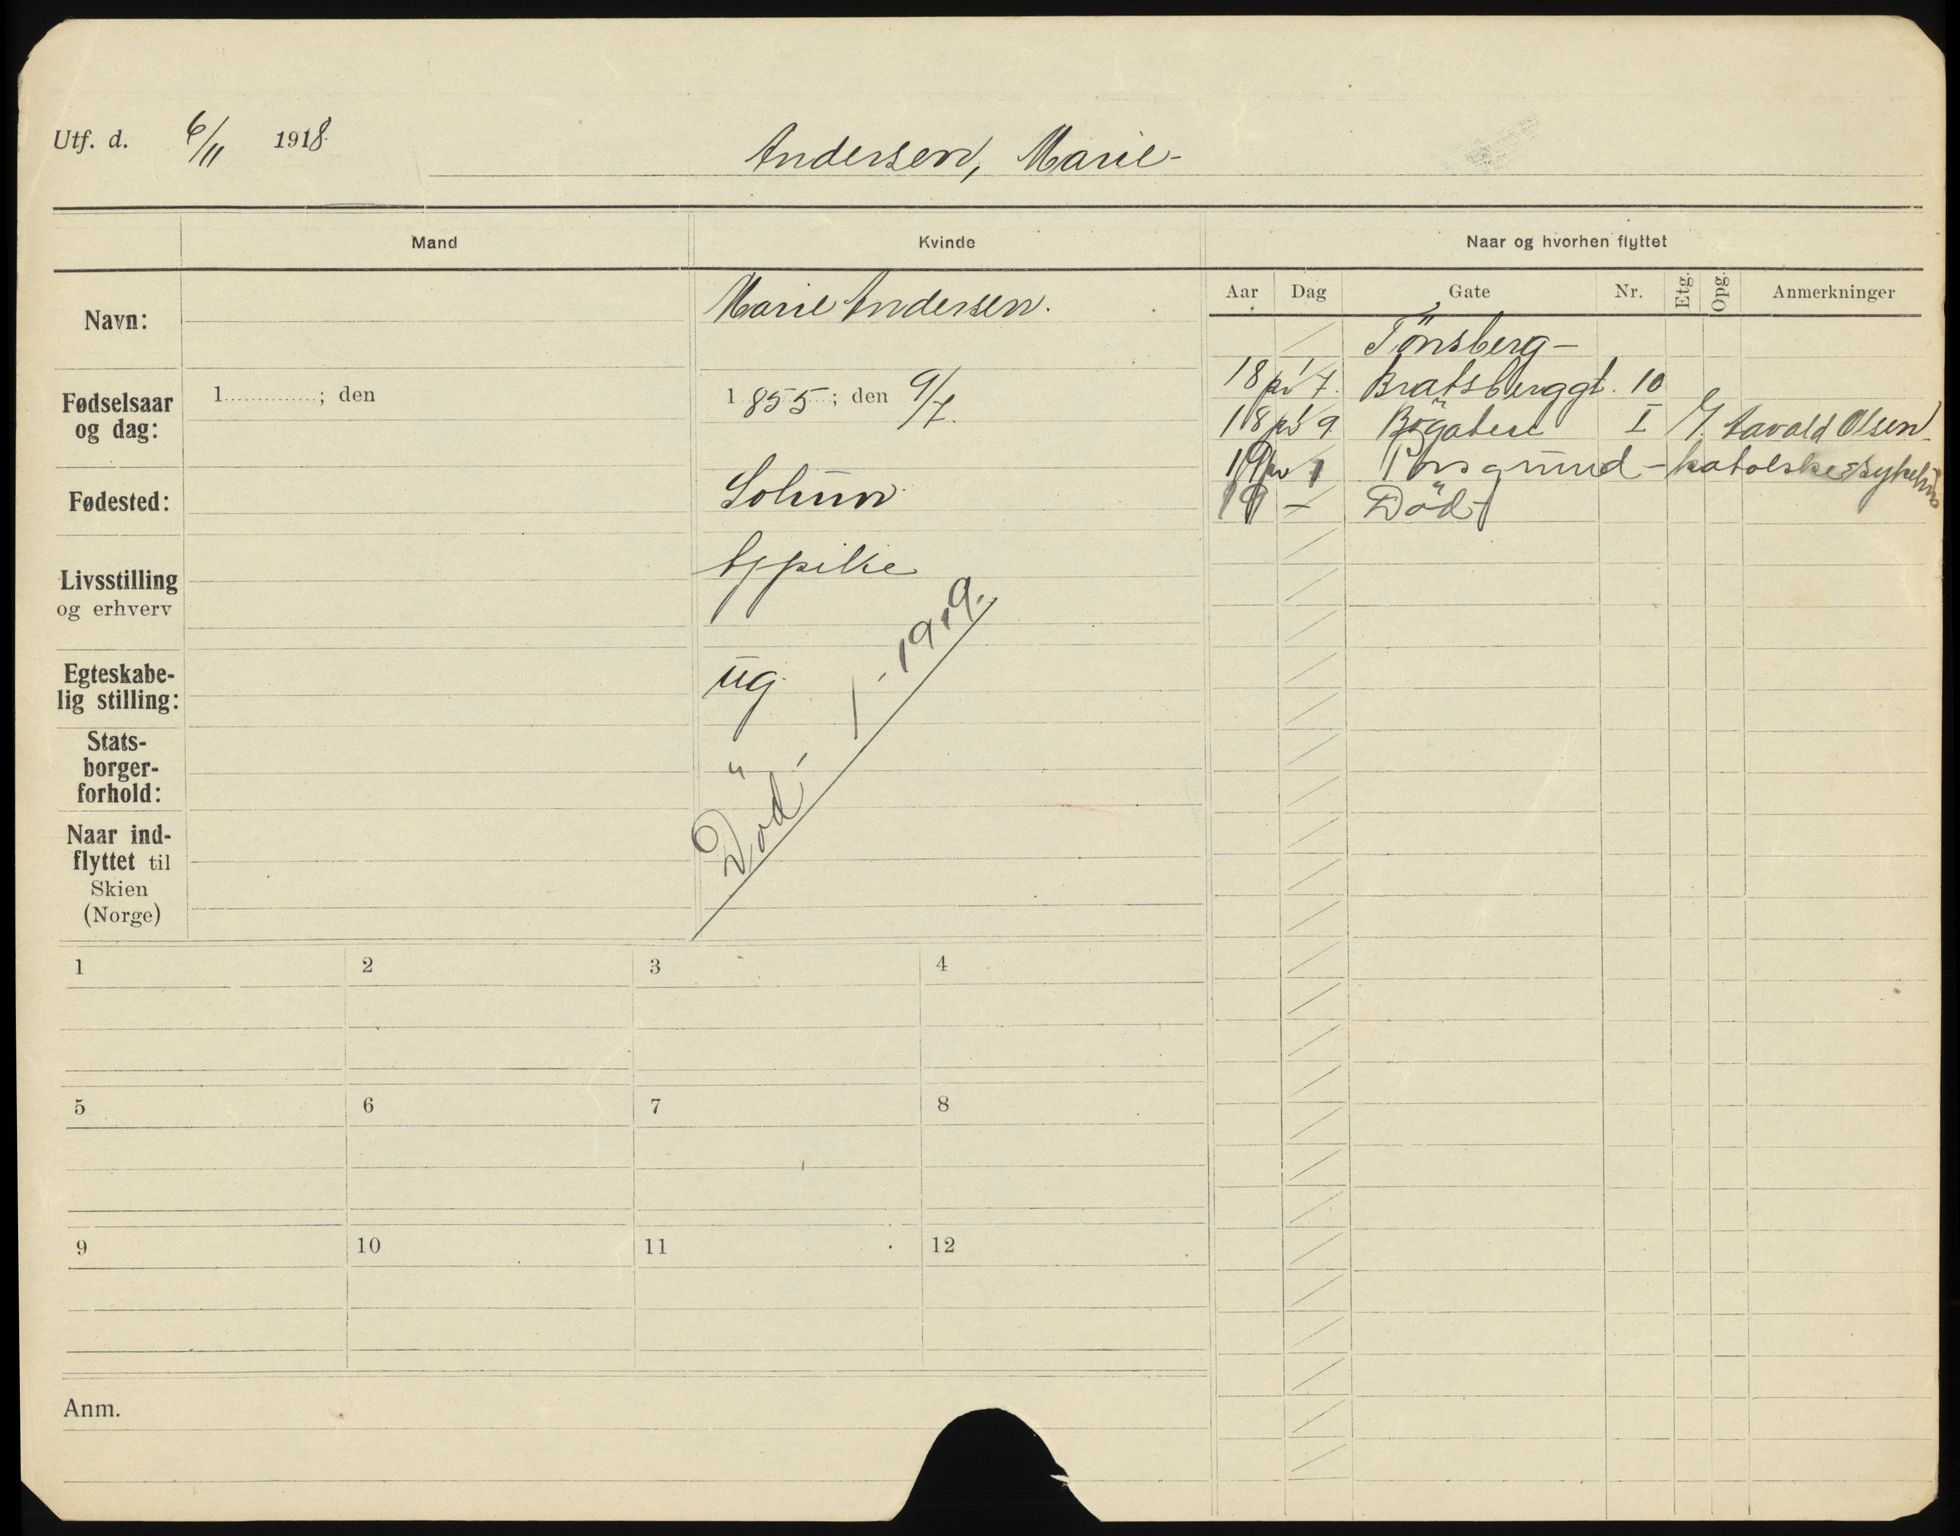 Utf. d. 6/11 1918.
Andersen, Marie-
Mand
Kvinde
Naar og hvorhen flyttet
Navn:
Marie Andersen.
Fødselsaar
og dag:
1..............; den
1 855; den 9/7.
Fødested:
Solum
Livsstilling
og erhverv
Egteskabe-
lig stilling:
ug.
Stats-
borger-
forhold:
Naar ind-
flyttet til
Skien
(Norge)
Död - / - 1919.
Aar Dag Gate Nr. Etg. Opg. Anmerkninger
Tönsberg-
18 1/7. Bratsberggt. 10
18 1/9. Bögaten I Olsen.
19 1 Porsgrund - katolske sykehus
19 - Död-
1 2 3 4
5 6 7 8
9 10 11 12
Anm.